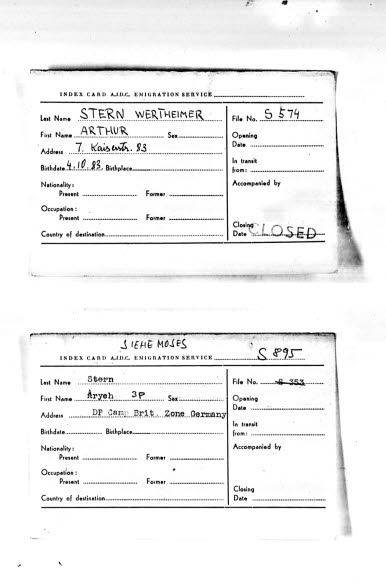 INDEX CARD A.J.D.C. EMIGRATION SERVICE
Last Name STERN WERTHEIMER File No. S 574
First Name ARTHUR Sex Opening
Address 7. Kaiserstr. 83 Date
Birthdate 4.10.83 Birthplace In transit from:
Nationality: Accompanied by
Present Former
Occupation:
Present Former
Country of destination Closing Date CLOSED
SIEHE MOSES
INDEX CARD A.J.D.C. EMIGRATION SERVICE S 895
Last Name Stern File No. S 353
First Name Aryeh 3P Sex Opening
Address DP Camp Brit. Zone Germany Date
Birthdate Birthplace In transit from:
Nationality: Accompanied by
Present Former
Occupation:
Present Former
Country of destination Closing Date